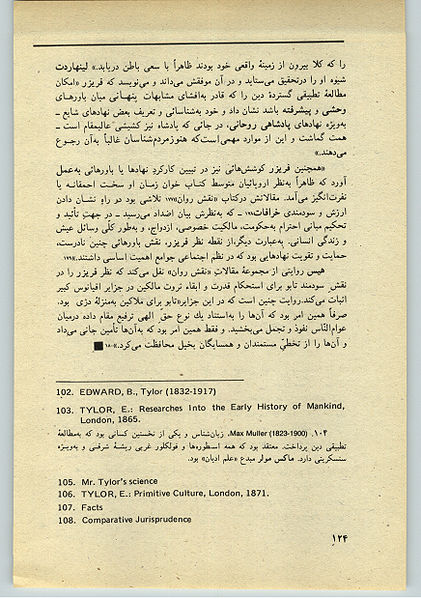 را که کلا بیرون از زمینهٔ واقعی خود بودند ظاهراً با سعی باطن دریابد.» لینهاردت
شیوه او را درتحقیق می‌ستاید و در آن موفقش می‌داند و می‌نویسد که فریزر «امکان
مطالعهٔ تطبیقی گستردهٔ دین را که قادر به‌افشای مشابهات پنهانی میان باورهای
وحشی و پیشرفته باشد نشان داد و خود به‌شناسائی و تعریف بعض نهادهای شایع ـ
به‌ویژه نهادهای پادشاهی روحانی، در جائی که پادشاه نیز کشیشی عالیمقام است ـ
همت گماشت و این از موارد مهمی‌است‌که هنوزمردم‌شناسان غالباً به‌آن رجوع
می‌دهند.»
«همچنین فریزر کوشش‌هائی نیز در تبیین کارکردِ نهادها یا باورهائی به‌عمل
آورد که ظاهراً به‌نظر اروپائیان متوسط کتاب خوان زمان او سخت احمقانه یا
نفرت‌انگیز می‌آمد. مقالاتش درکتاب «نقش روان» تلاشی بود در راهِ نشان دادن
ارزش و سودمندی خرافات ـ که به‌نظرش بیان اضداد می‌رسید ـ در جهتِ تأئید و
تحکیم مبانی احترام به‌حکومت، مالکیت خصوصی، ازدواج، و به‌طور کلّی وسائل عیش
و زندگی انسانی. به‌عبارت دیگر،از نقطه نظر فریزر، نقش باورهائی چنین نادرست،
حمایت و تقویت نهادهایی بود که در نظم اجتماعی جوامع اهمیت اساسی داشتند.
هیس روایتی از مجموعهٔ مقالاتِ «نقش روان» نقل می‌کند که نظر فریزر را در
نقشِ سودمند تابو برای استحکام قدرت و ابقاء ثروت مالکین در جزایر اقیانوس کبیر
اثبات می‌کند.روایت چنین است که در این جزایر«تابو برای ملاکین به‌منزلهٔ دژی بود.
صرفاً همین امر بود که آن‌ها را به‌استناد یک نوع حق الهی ترفیع مقام داده درمیان
عوامّ‌النّاس نفوذ و تجمل می‌بخشید. و فقط همین امر بود که به‌آن‌ها تأمین جانی می‌داد
و آن‌ها را از تخطّیِ مستمندان و همسایگان بخیل محافظت می‌کرد.» ■
102. EDWARD, B., Tylor (1832-1917)
103. TYLOR, E.: Researches Into the Early History of Mankind,
London, 1865.
۱۰۴. Max Muller (1823-1900)، زبان‌شناس و یکی از نخستین کسانی بود که به‌مطالعهٔ
تطبیقی دین پرداخت. معتقد بود که همه اسطوره‌ها و فولکلور غربی ریشهٔ شرقی و به‌ویژه
سنسکریتی دارد. ماکس مولر مبدع «علم ادیان» بود.
105. Mr. Tylor's science
106. TYLOR, E.: Primitive Culture, London, 1871.
107. Facts
108. Comparative Jurisprudence
۱۲۴